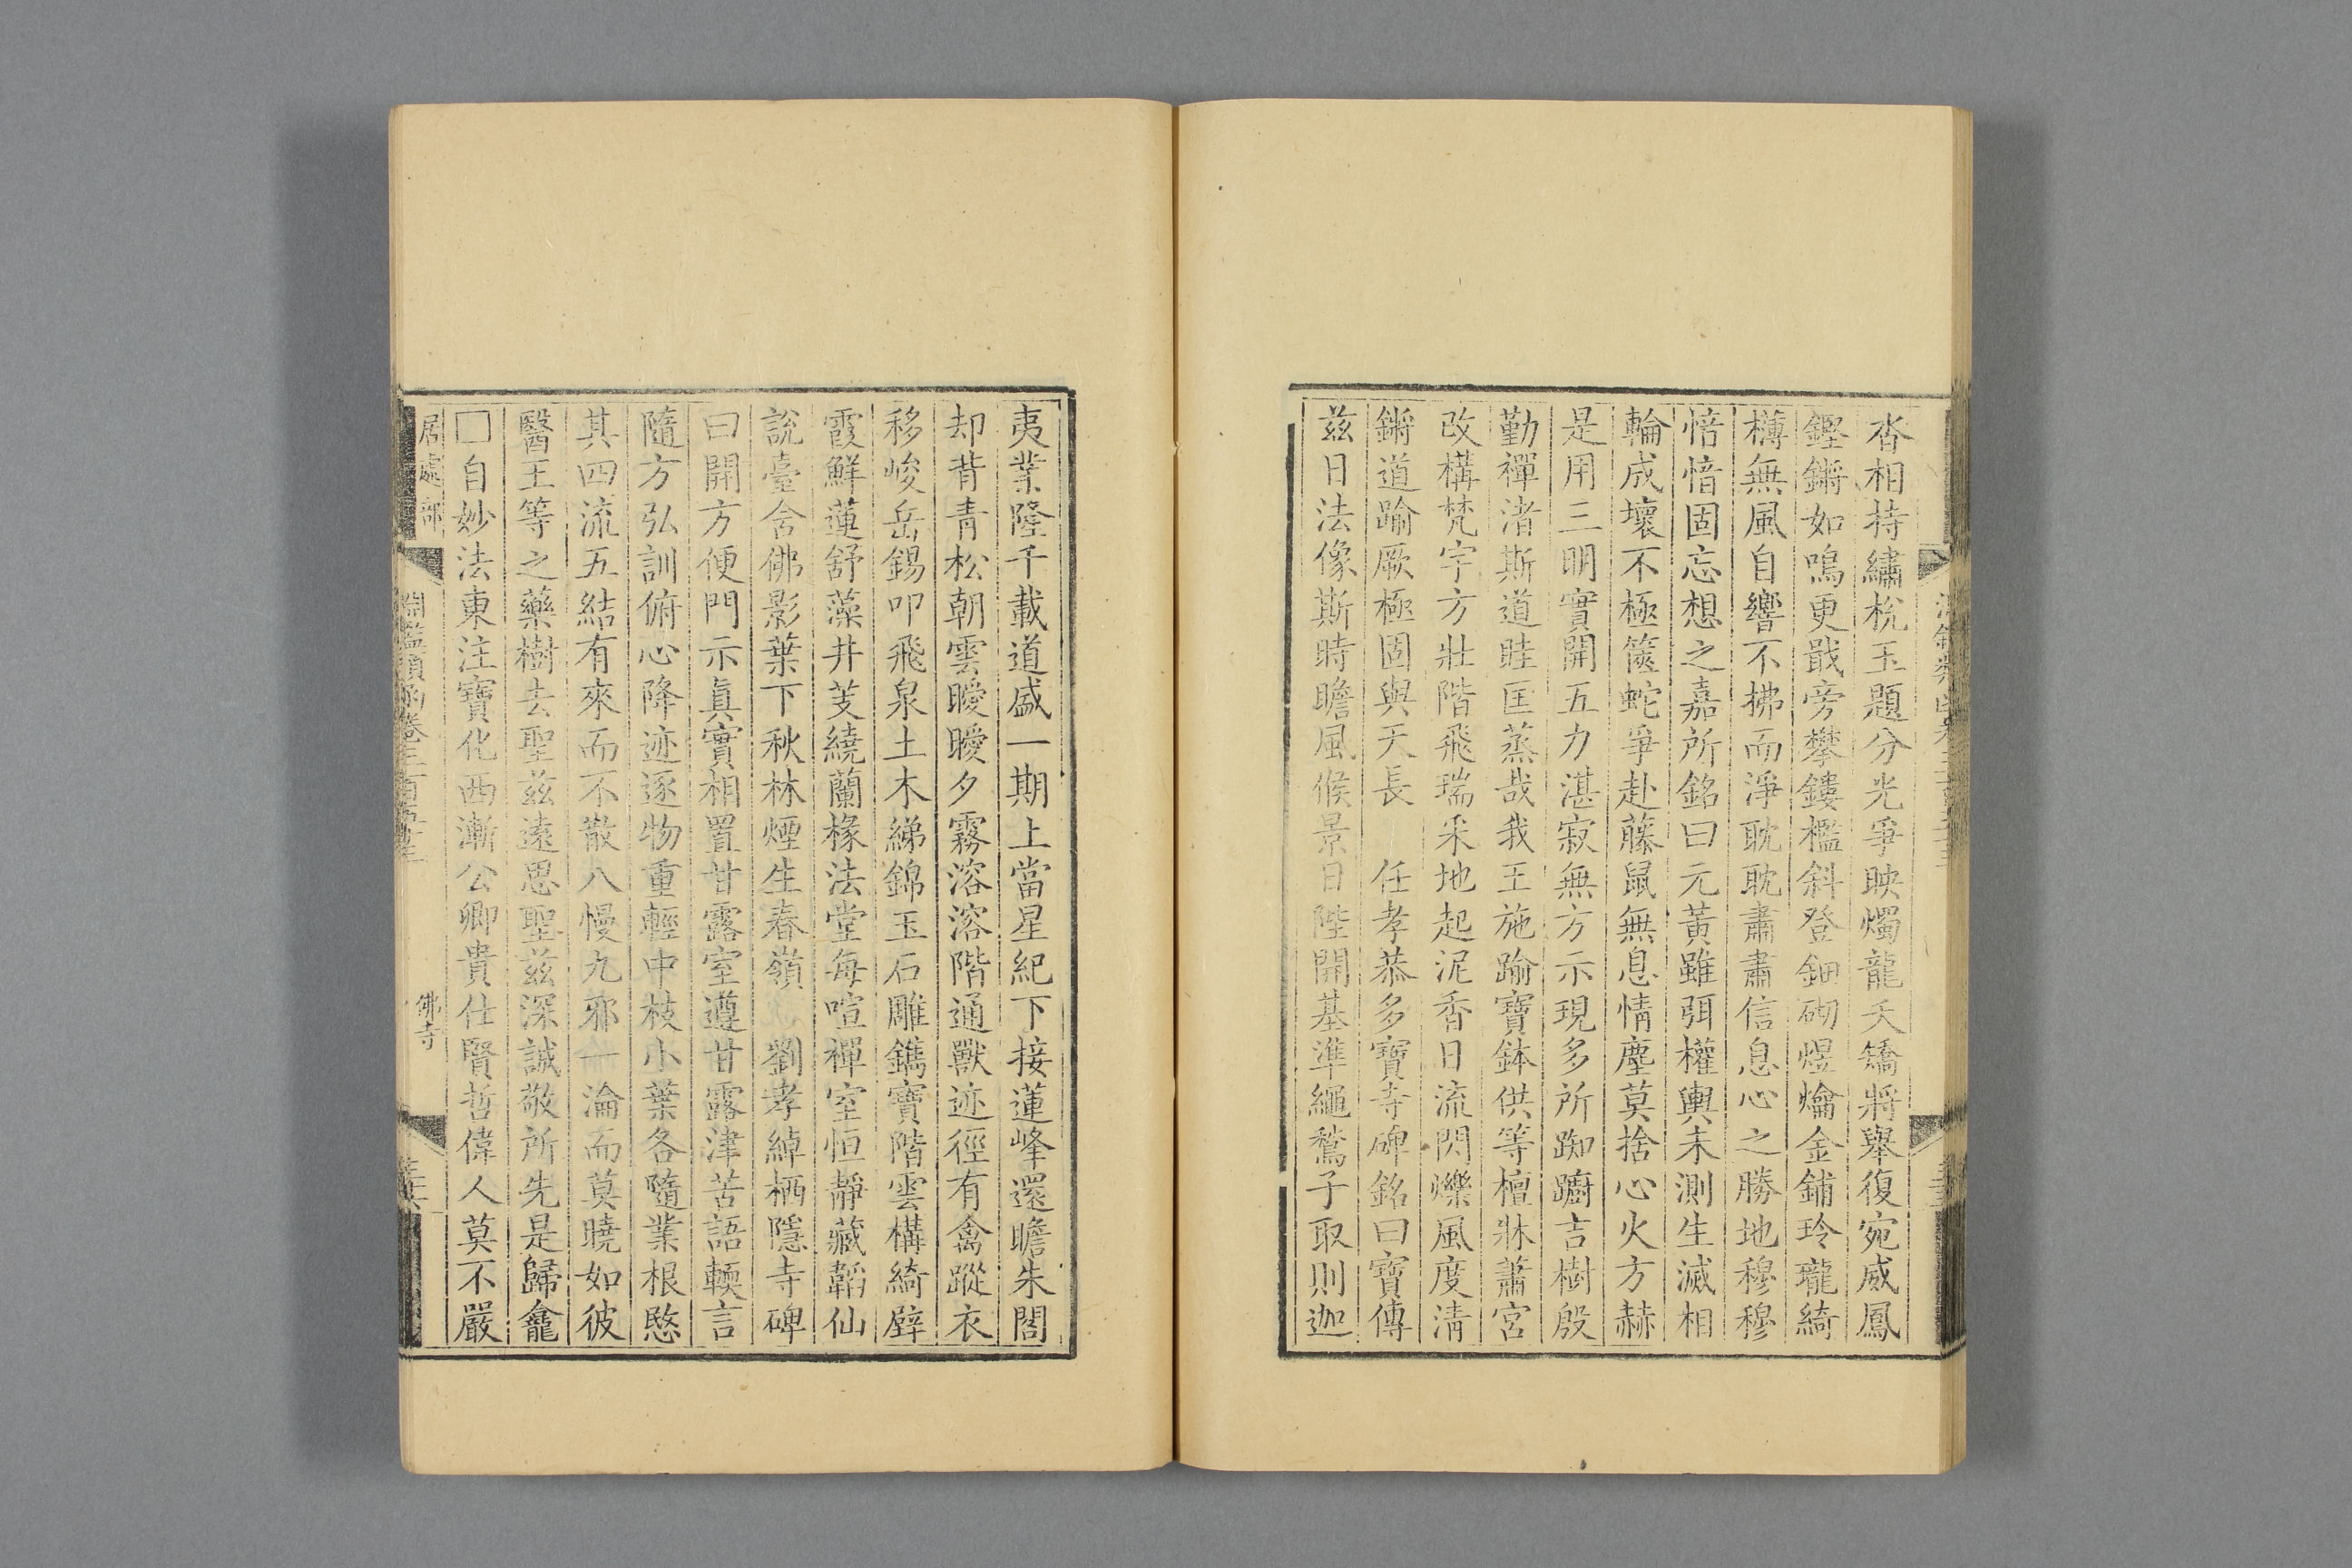 沓相持繡栭玉題分光爭映燭龍夭矯將舉復宛威鳳
鏗鏘如鳴更戢旁攀鏤檻斜登鈿砌煜爚金鋪玲瓏綺
欂無風自響不拂而淨耽耽肅肅信息心之勝地穆穆
愔愔固忘想之嘉所銘曰元黃雖弭權輿未測生滅相
輪成壞不極篋蛇爭赴藤鼠無息情塵莫捨心火方赫
是用三明實開五力湛寂無方示現多所踟躕吉樹殷
勤禪渚斯道眭匡蒸哉我王施踰寶鉢供等檀牀蕭宮
改構梵宇方壯階飛瑞采地起泥香日流閃爍風度淸
鏘道踰厥極固與天長　任孝恭多寶寺碑銘曰寶傳
兹日法像斯時瞻風候景日陛開基準繩鶖子取則迦
夷業隆千載道盛一期上當星紀下接蓮峰還瞻朱閣
却背青松朝雲曖曖夕霧溶溶階通獸迹徑有禽蹤衣
移峻岳錫叩飛泉土木綈錦玉石雕鐫寶階雲構綺壁
霞鮮蓮舒藻井芰繞蘭椽法堂每喧禪室恒靜藏韜仙
說臺舍佛影葉下秋林煙生春嶺　劉孝綽栖隱寺碑
曰開方便門示眞實相置甘露室遵甘露津苦語輭言
隨方弘訓俯心降迹逐物重輕中枝小葉各隨業根愍
其四流五結有來而不散八慢九邪一淪而莫曉如彼
醫王等之藥樹去聖兹遠思聖兹深誠敬所先是歸龕
□自妙法東注寶化西漸公卿貴仕賢哲偉人莫不嚴
居處部
淵鑑類函卷三百五十三
佛寺